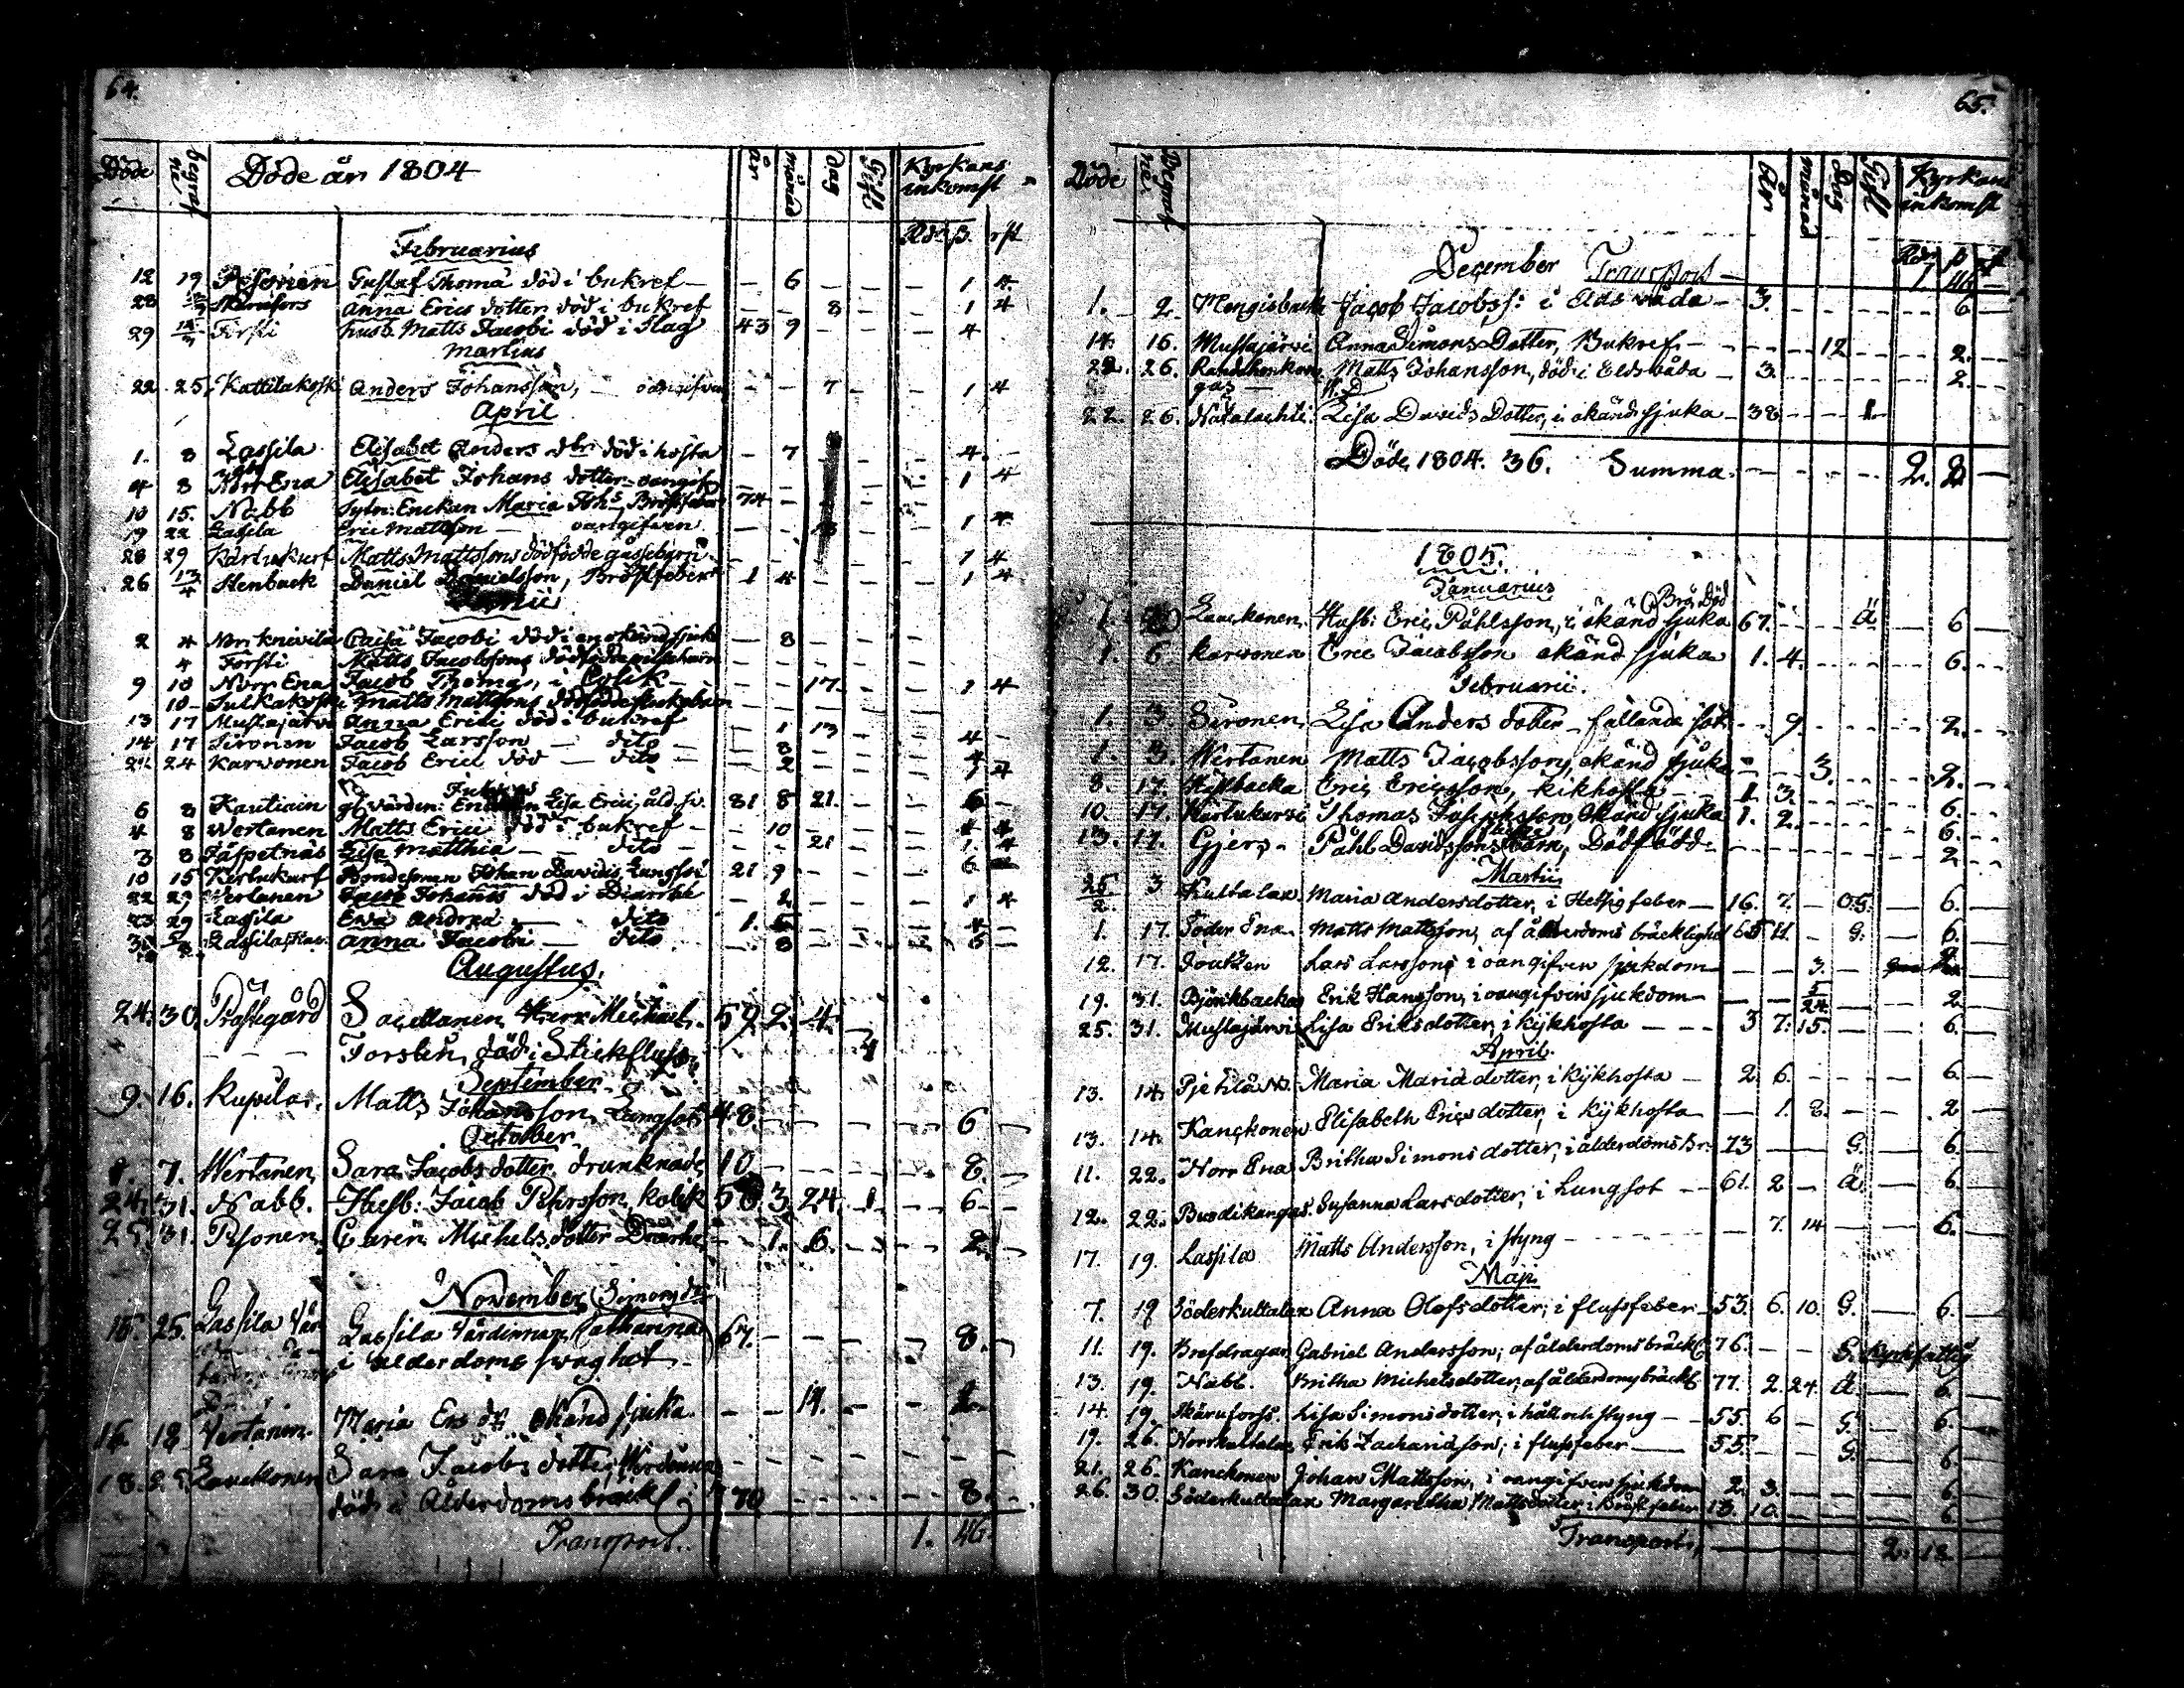 64.
Döde begrafne Döde år 1804 år månad dag Gift Kyrkans inkomst
Rdr ß. rst
Februarius
12 19 Pesonen Gustaf Thomæ död i bukref — — 6 — — — 1 4
28 Skärufors Anna Erics dotter död i bukref — — 8 — — 1 4
29 Forsti husb. Matts Jacobi död i Slag 43 9 — — — 4
Martius
22 25 Kattilakoski Anders Johansson, — oangifven — — 7 — — 1 4
April
1. 8 Lassila Elisabet Anders dtr död i hosta — 7 — — — 4. —
4 8 Norr Ena Elisabet Johans dotter oangifv — — — — 1 4
10 15. Nabb Sytn: Enckan Maria Joh: Bröstfeber 74 —
19 22 Lassila Eric Mattsson — oangifven — — 1 4
28 29 Karlukurf Matts Mattssons dödfödde gossebarn — 1 4
26 13/4 Stenback Daniel Danielsson, Bröstfeber 1 4 — — — 1 4
Junii
2 4 Norr knivilä Caisa Jacobi död i en okänd sjuka — 8 — — —
4 Forsti Matts Jacobssons dödfödde — — — —
9 10 Norr Ena Jacob Thomæ, i Colik — — — 17 — — 1 4
10 Sulkakoski Matts Mattssons dödfödde flickebarn — — — —
13 17 Mustajärvi Anna Erici död i bukref — 1 13 — —
14 17 Sironen Jacob Larsson — dito — — 8 — — 4 —
21 24 Karvonen Jacob Erici död — dito — — 2 — — 1 4
Julius
6 8 Kautiain gl. värden: Enckan Lisa Erici, åld. sv. 81 8 21. — — 6 —
4 8 Wertanen Matts Erici död i bukref — — 10 — — — 4 4
3 8 Jäspetnäs Lisa Matthiæ — — dito — — — 21 — — 1. 4
10 15 Karlukurf Bondesonen Johan Davidis Lungsot 21 9 — — — 6
22 29 Wertanen Jacob Johannis död i Diarrhé — 2 — — — 1 4
23 29 Lassila Ewa Andreæ — dito 1. 5 — — — 4 —
30 Lassila Anna Jacobi — dito — 8 — — — 5 —
Augustus.
24. 30. Prästegård Sacellanen Herr Michael 59. 2. 4.
— — — Forslin, död i Stickfluss 1
September
9. 16. Kupila. Matts Johansson Lungsot 48. — — — 6 —
October
1. 7. Wertanen Sara Jacobs dotter drunknade 10 — — — — 8. —
24. 31. Nabb. Husb: Jacob Pehrsson, kolik 58. 3. 24. 1 — — 6 —
25. 31. Pesonen. Carin Michels dotter Diarhé — 1. 6. — — — 2. —
November Simonsdr
15. 25. Lassila Lassila Värdinnan Catharina 67. — — — — 8. —
i ålderdoms svaghet
16. 18 Vertanen. Maria Ers dr okänd sjuka — — 14. — — 2
18. 25. Lauckonen Sara Jacobs dotter, Werdinna — — — — —
död i Ålderdoms bräckl: 70 — — — 8. —
Transport. 1. 46.
65.
Döde Begrafne År månad Dag Gift Kyrkans inkomst
Rdr ß rst
December Transport — 1. 46 —
1. 2. Mengisback Jacob Jacobss: i Elds våda — 3. — 6 —
14. 16. Mustajärvi Anna Simons Dotter, Bukref — — — 12 — — 2. —
22. 26. Kandelkankangas — Matts Johansson, död i Eldsvåda — 3. — 2. —
22. 26. Natalachti. Lisa Davids Dotter, i okänd sjuka — 38 — — 1.
Döde 1804. 36. Summa. — — — 2. 8 —
1805.
Januarius
Brå Död
1. Lauckonen. Husb: Eric Påhlsson, i okänd sjuka 67. — — Ä. — 6 —
1. 6 Karvonen Eric Jacobsson okänd sjuka 1. 4. — — — 6. —
Februarii.
1. 3. Sironen Lisa Anders doter — fallande sot — 9. — — — 2. —
1. 3. Wertanen Matts Jacobsson, okänd sjuka — — 3. — — 2. —
8. 17. Högbacka Eric Ericsson, kikhosta — 1. 3. — — — 6. —
10. 17. Karlukurvi Thomas Josephsson, Okänd sjuka 1. 2. — — — 6. —
13. 17. Gjers. Påhl Davidssons Barn, Dödfödd. — — — — 2 —
Martii
25/2. 3 Kultalax Maria Andersdotter, i Hetsig feber — 16. 7. — O.G. — 6. —
1. 17. Söder Ena. Matts Mattsson, af ålderdoms bräcklighet 65 11. — G. — 6. —
12. 17. Jouken Lars Larssons i oangifven sjukdom — — 3. —
19. 31. Björkbacka Erik Hansson, i oangifven sjukdom — — — 5/24. — — 2 —
25. 31. Mustajärvi Lisa Eriksdotter, i kykhosta — — — 3 7. 15. — — 6. —
April.
13. 14. Pjetilä N. Maria Mariædotter, i kykhosta — 2. 6. — — — 6. —
13. 14. Kanckonen Elisabeth Ericsdotter, i kykhosta — 1. 8. — — 2 —
11. 22. Norr Ena Britha Simonsdotter, i ålderdoms Br. 73 — — G. — 6. —
12. 22. Busdikangas Susanna Larsdotter, i Lungsot — — 61. 2 — Ä. — 6. —
17. 19. Lassila Matts Andersson, i styng — — — 7. 14 — — 6. —
Maji
7. 19. Söderkultalax Anna Olofsdotter, i flussfeber — 53. 6. 10. G. — 6. —
11. 19. Brefdragar Gabriel Andersson; af ålderdoms bräckl. 76. — — G. Kyrkfattig
13. 19. Nabb. Britha Michelsdotter, af ålderdoms bräckl. 77. 2. 24. Ä — 6. —
14. 19. Skärufors. Lisa Simonsdotter, i håll och styng — — 55. 6 — G. — 6. —
19. 26. Norrkultalax Erik Zachariasson; i flussfeber — 55. — — G. — 6. —
21. 26. Kanckonen Johan Mattsson, i oangifven sjukdom 2. 3. — — — 6. —
26. 30. Söderkultalax Margaretha Mattsdotter i Bröstfeber 13. 10. — — — 6. —
Transport, — 2. 12 —